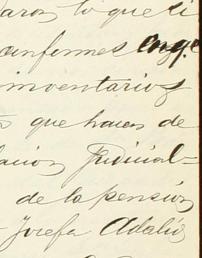 aron lo que si
conformes en q.e
inventarios
que hacen de
lacion Judicial-
de la pension
Josefa Adalid